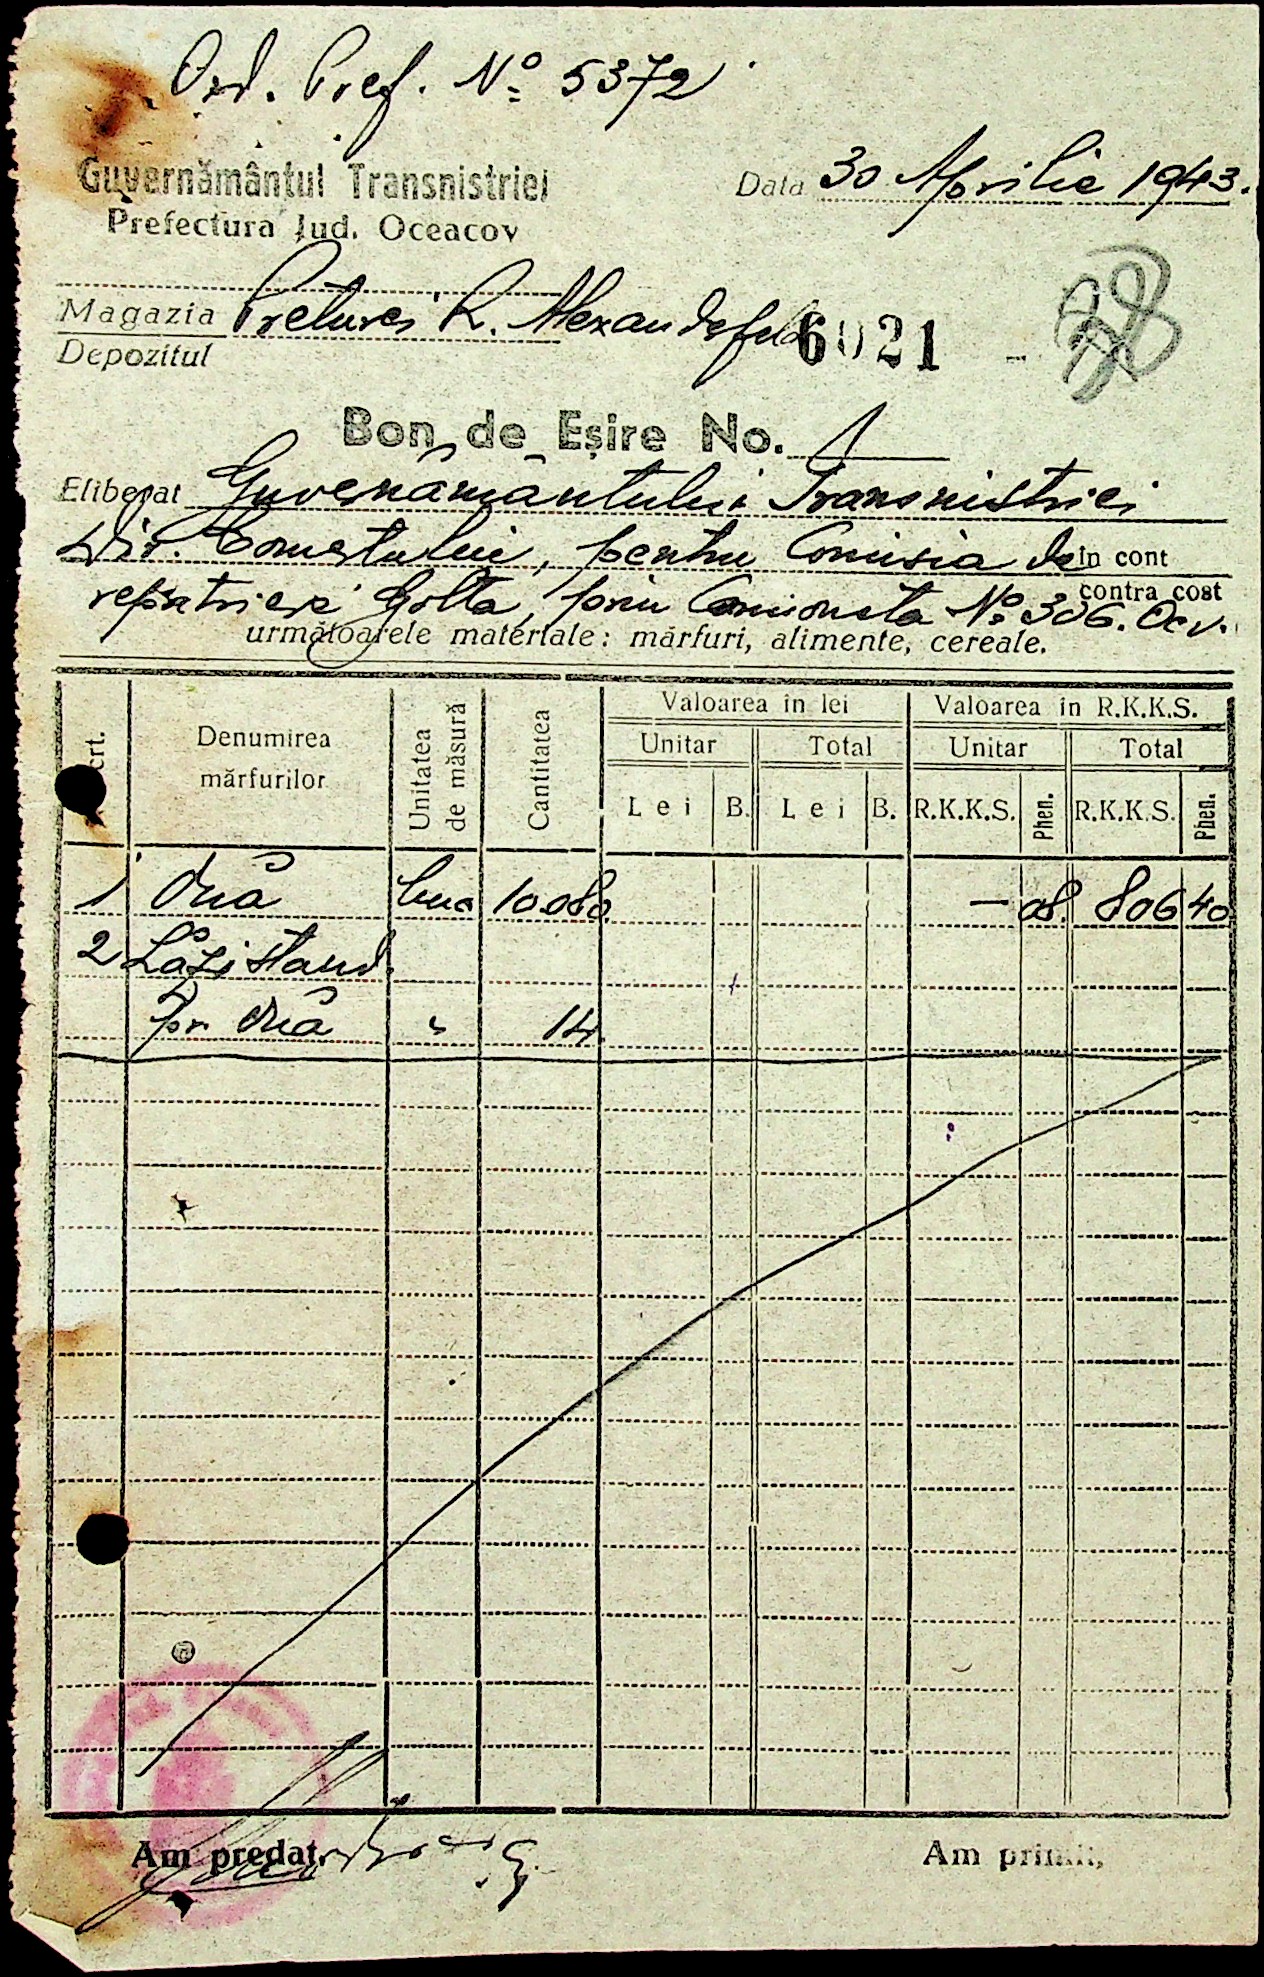 Ord. Pref. No 5372
Guvernământul Transnistriei
Prefectura Jud. Oceacov
Data 30 Aprilie 1943.
Magazia Preturei R. Alexanderfeld
Depozitul
6021 -
Bon de Eșire No. 1
Eliberat Guvernământului Transnistriei
Dir. Comerțului, pentru Comisia de în cont
contra cost
repatriere Golta, prin Camioneta No 306. Ocv.
următoarele materiale: mărfuri, alimente, cereale.
crt. Denumirea mărfurilor Unitatea de măsură Cantitatea Valoarea în lei Valoarea în R.K.K.S.
Unitar Total Unitar Total
Lei B. Lei B. R.K.K.S. Phen. R.K.K.S. Phen.
1 Ouă buc 10.080 — 08. 806 40
2 Lăzi stand.
pr. Ouă " 14.
Am predat,
Am primit,